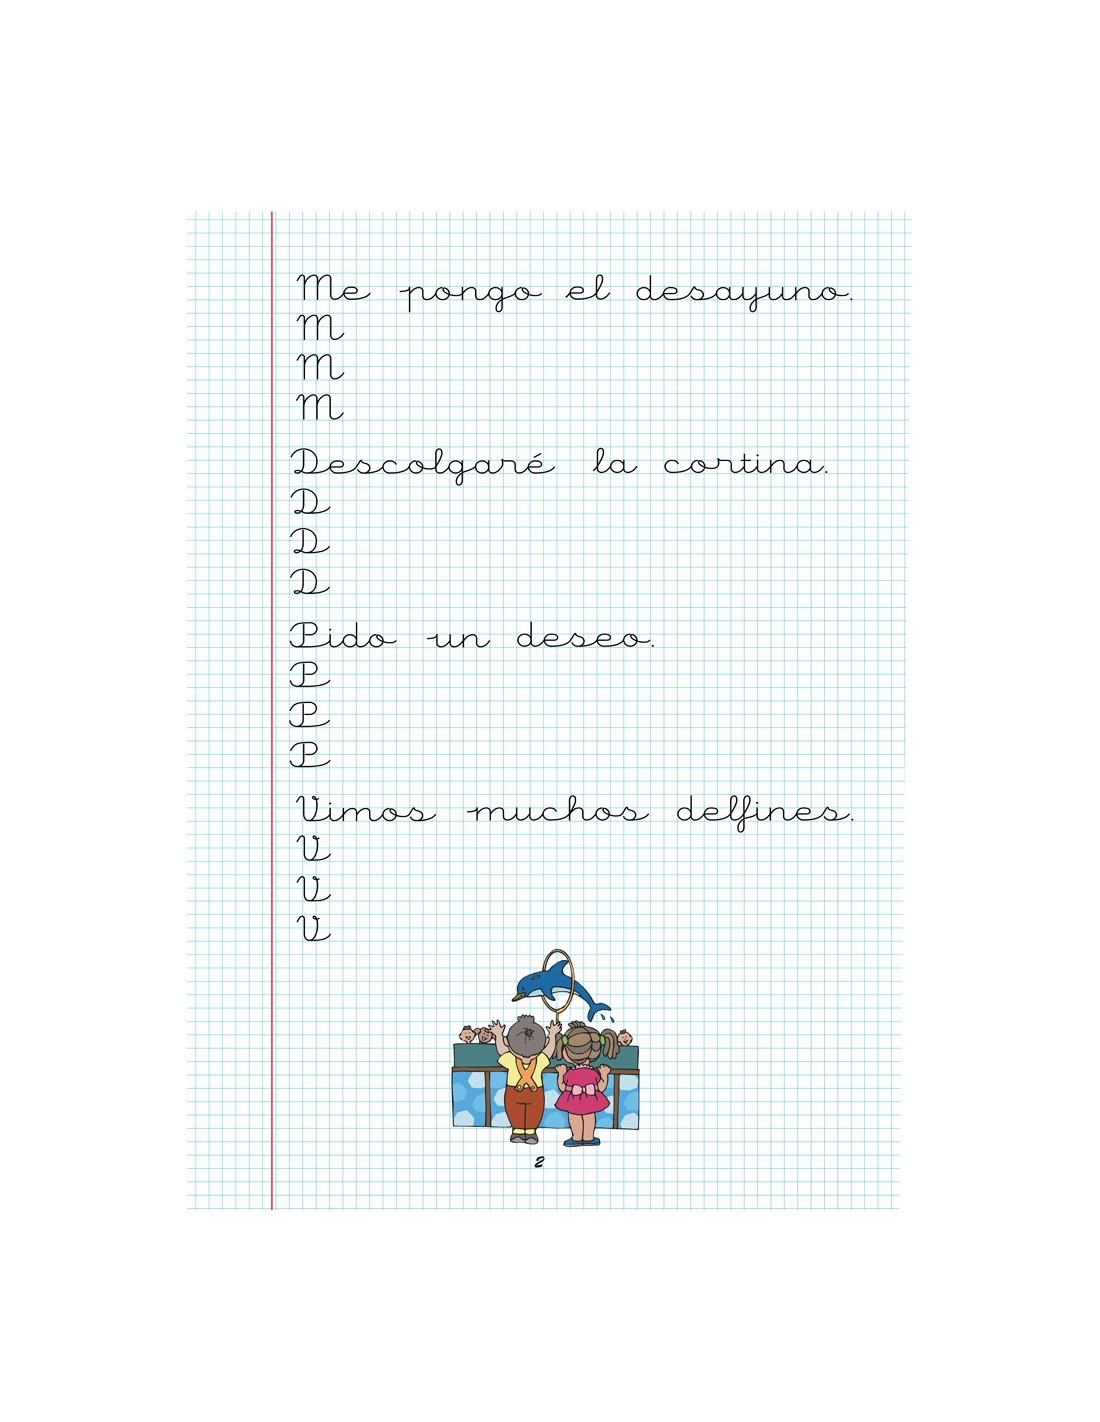 Me pongo el desayuno.
M
M
M
Descolgaré la cortina.
D
D
D
Pido un deseo.
P
P
P
Vimos muchos delfines.
V
V
V
2